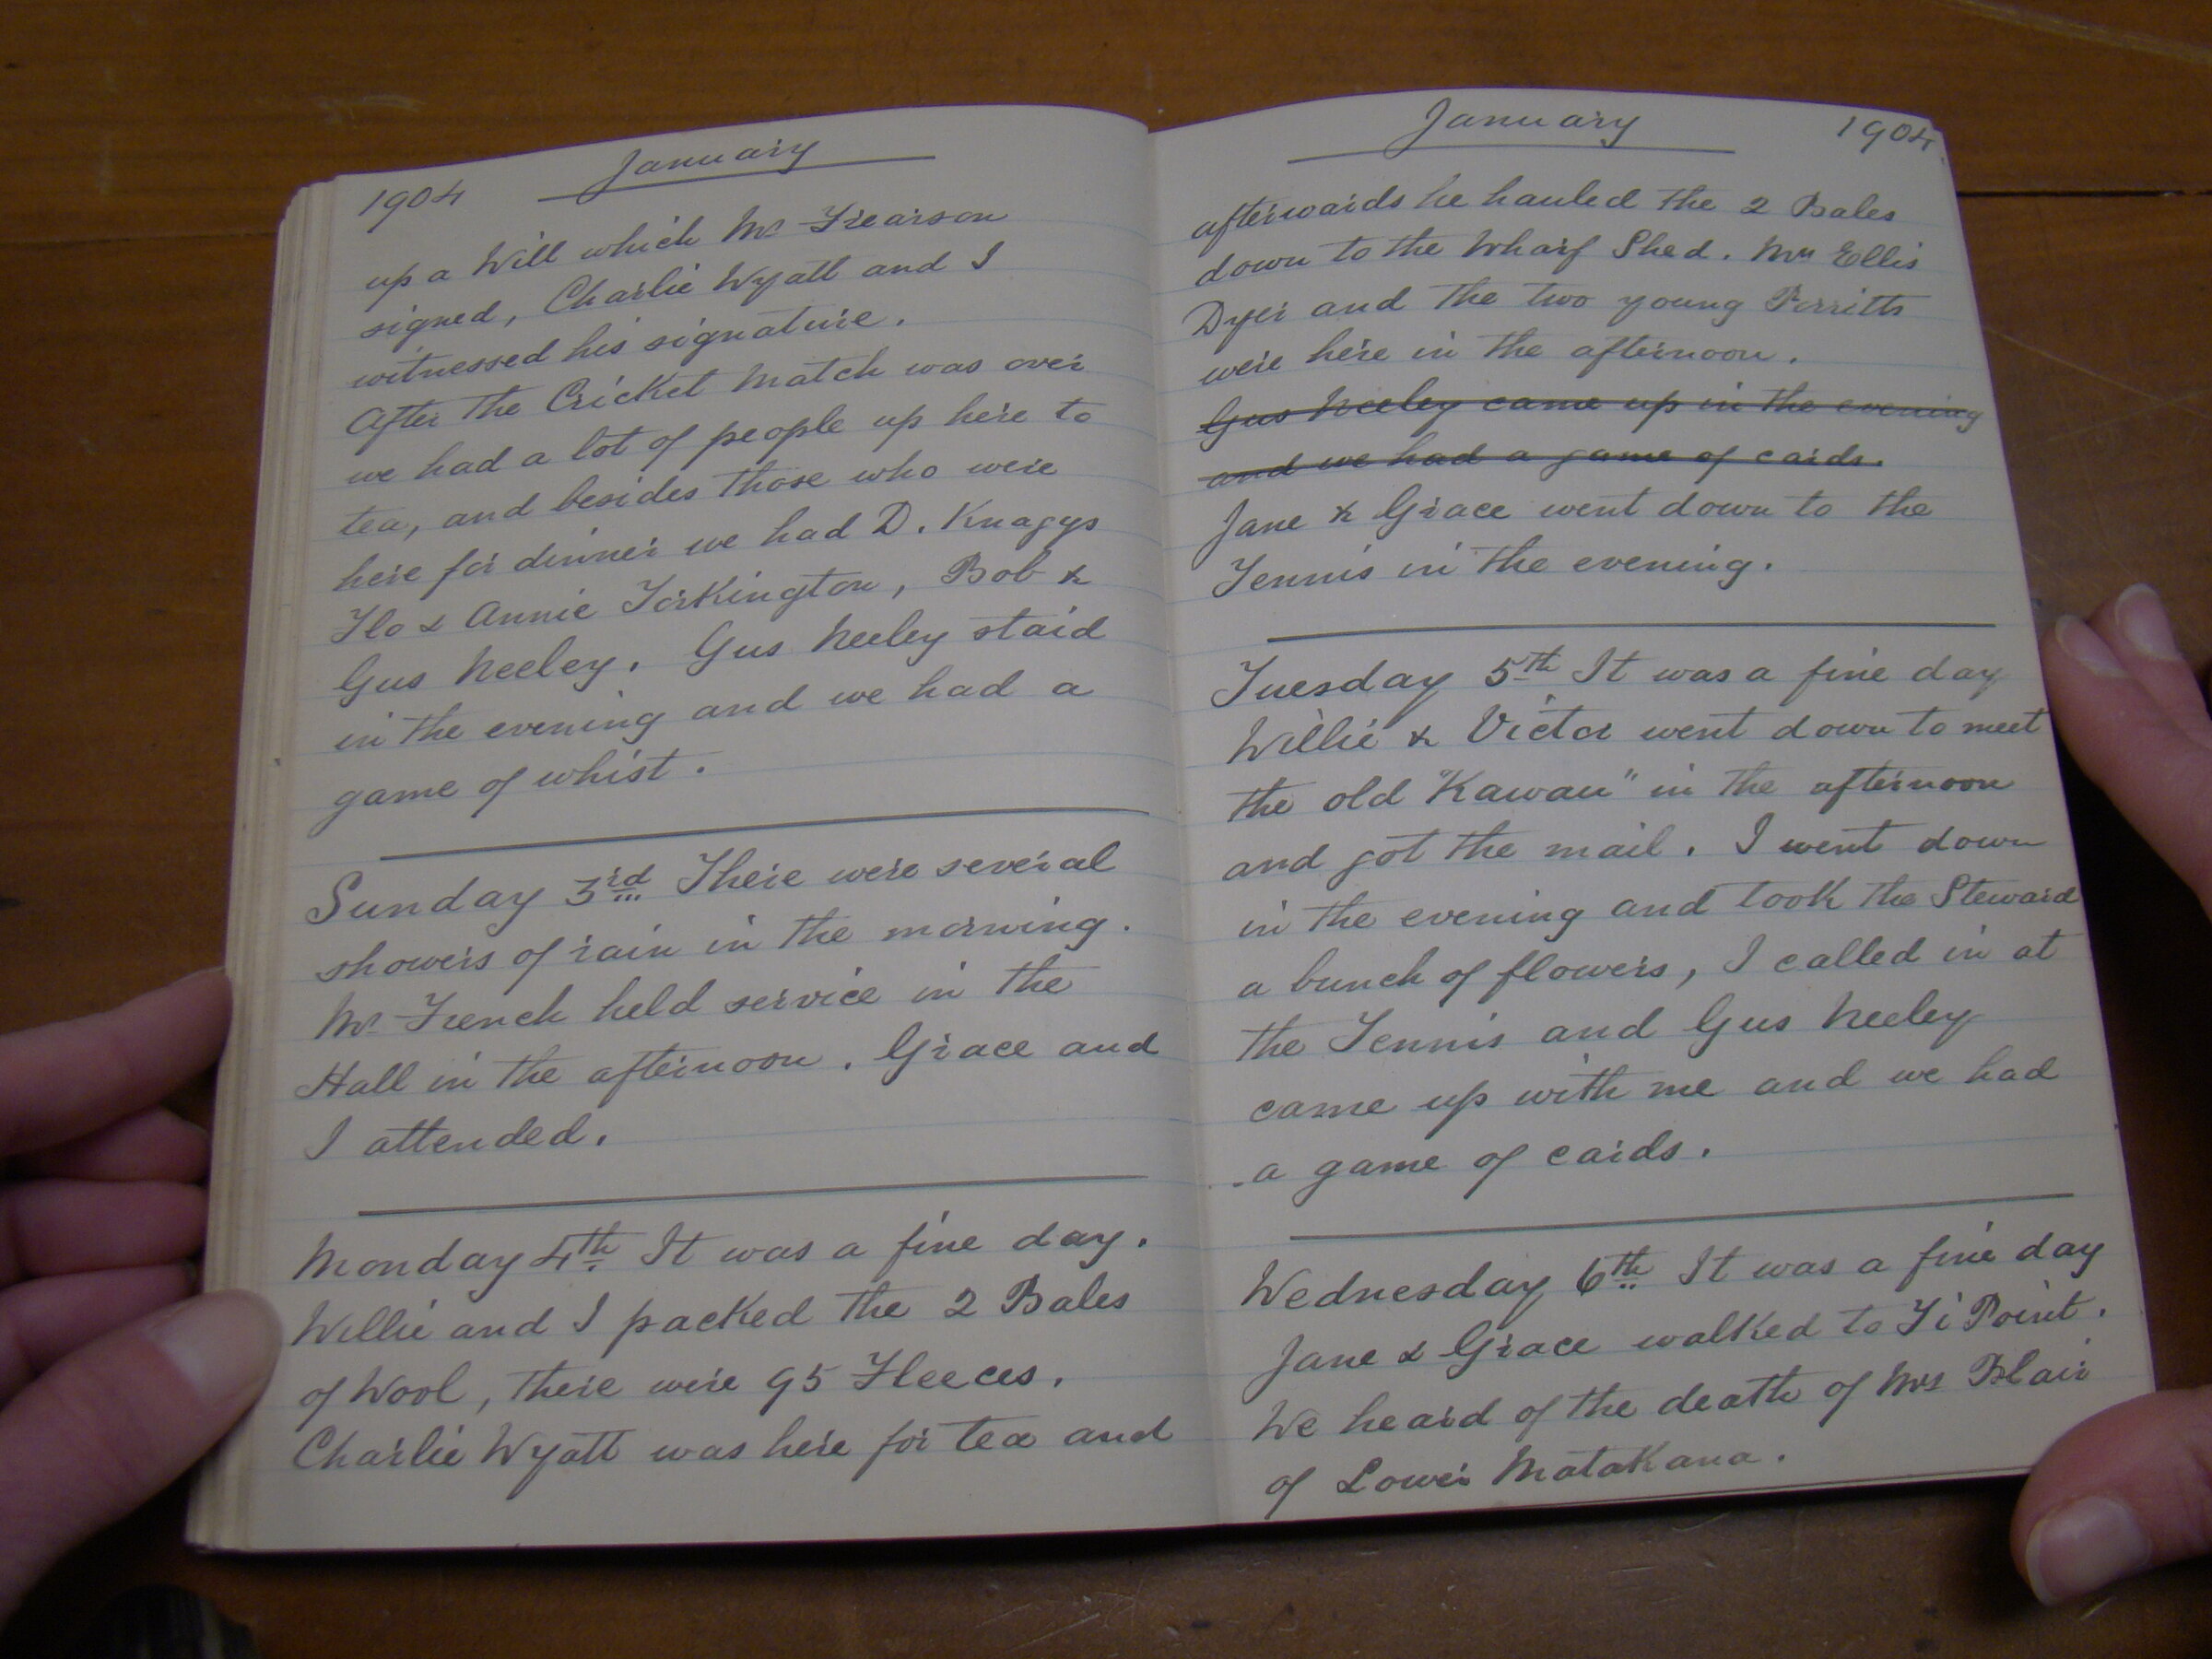 1904 January
up a Will which Mr Frearson
signed, Charlie Wyatt and I
witnessed his signature.
After the Cricket Match was over
we had a lot of people up here to
tea, and besides those who were
here for dinner we had D. Knaggs
Flo & Annie Torkington, Bob &
Gus Neeley. Gus Neeley staid
in the evening and we had a
game of whist.
Sunday 3rd There were several
showers of rain in the morning.
Mr French held service in the
Hall in the afternoon. Grace and
I attended.
Monday 4th It was a fine day.
Willie and I packed the 2 Bales
of Wool, there were 95 Fleeces.
Charlie Wyatt was here for tea and
January 1904
afterwards he hauled the 2 Bales
down to the Wharf Shed. Mrs Ellis
Dyer and the two young Perritts
were here in the afternoon.
Gus Neeley came up in the evening
and we had a game of cards.
Jane & Grace went down to the
Tennis in the evening.
Tuesday 5th It was a fine day
Willie & Victor went down to meet
the old "Kawau" in the afternoon
and got the mail. I went down
in the evening and took the Steward
a bunch of flowers, I called in at
the Tennis and Gus Neeley
came up with me and we had
a game of cards.
Wednesday 6th It was a fine day
Jane & Grace walked to Ti Point.
We heard of the death of Mrs Blair
of Lower Matakana.